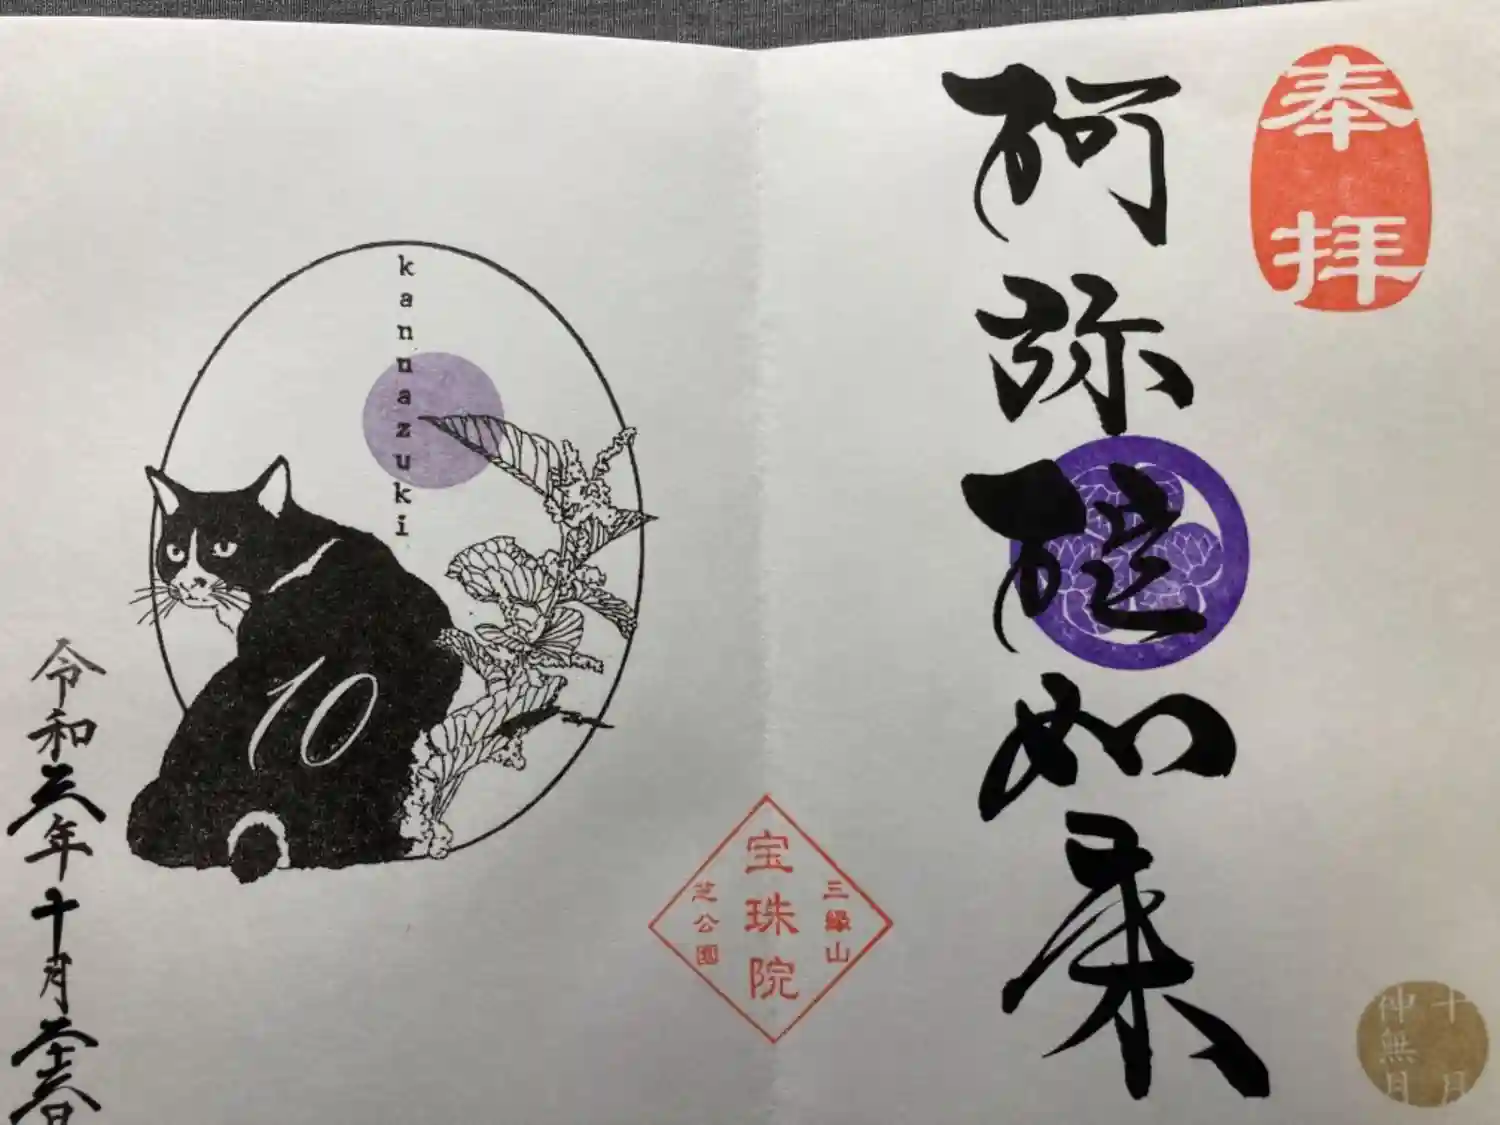 奉拝
阿弥陀如来
十月
神無月
三縁山
宝珠院
芝公園
kannazuki
10
令和三年十月